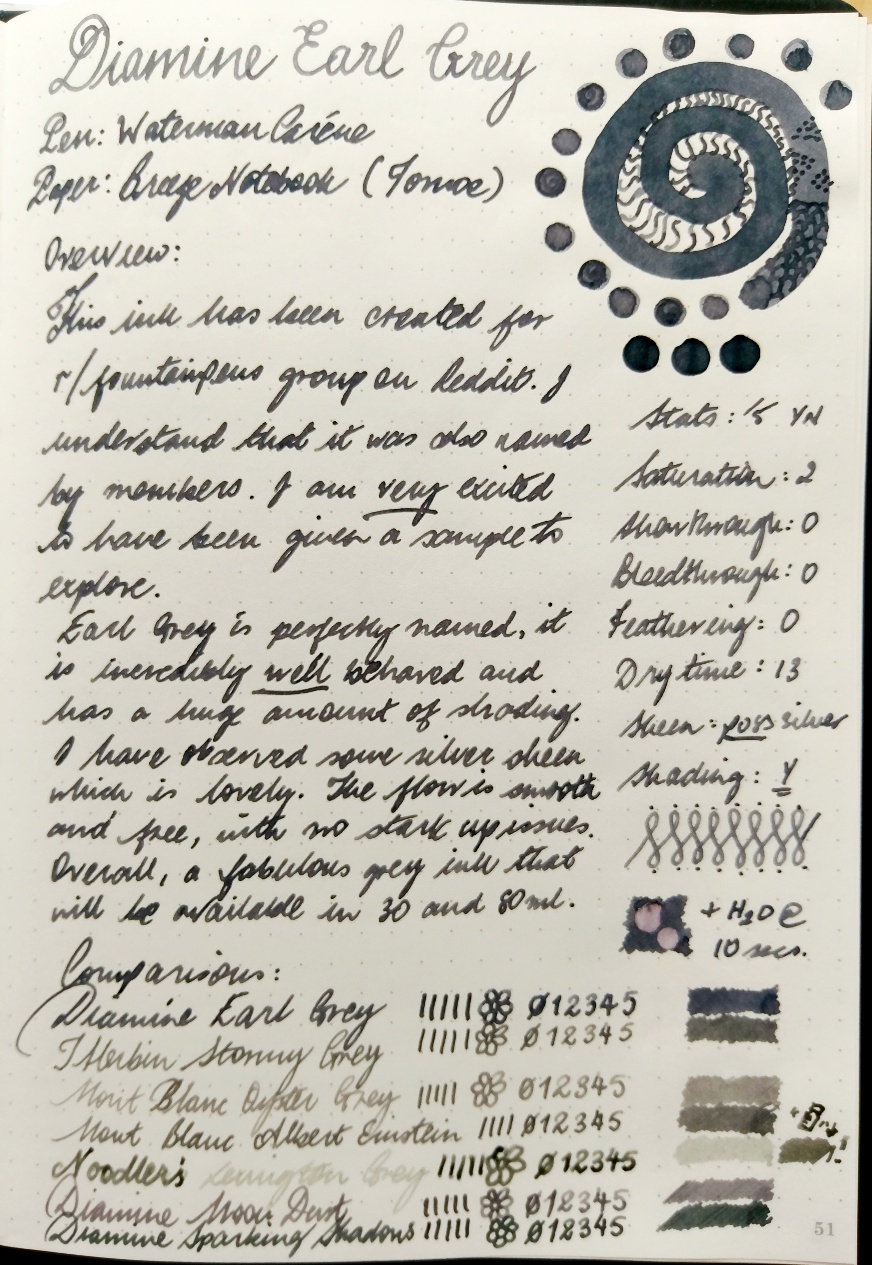 Diamine Earl Grey
Pen: Waterman Caréne
Paper: Breeze Notebook (Tomoe)
Overview:
This ink has been created for
r/fountainpens group on Reddit. I
understand that it was also named
by members. I am very excited
to have been given a sample to
explore.
Earl Grey is perfectly named, it
is incredibly well behaved and
has a huge amount of shading.
I have observed some silver sheen
which is lovely. The flow is smooth
and free, with no start up issues.
Overall, a fabulous grey ink that
will be available in 30 and 80ml.
Stats: /5 YN
Saturation: 2
Showthrough: 0
Bleedthrough: 0
Feathering: 0
Dry time: 13
Sheen: poss silver
Shading: Y
+ H2O @
10 secs.
Comparisons:
Diamine Earl Grey 012345
J Herbin Stormy Grey 012345
Mont Blanc Oyster Grey 012345
Mont Blanc Albert Einstein 012345
Noodler's Lexington Grey 012345
Diamine Moon Dust 012345
Diamine Sparking Shadows 012345
51